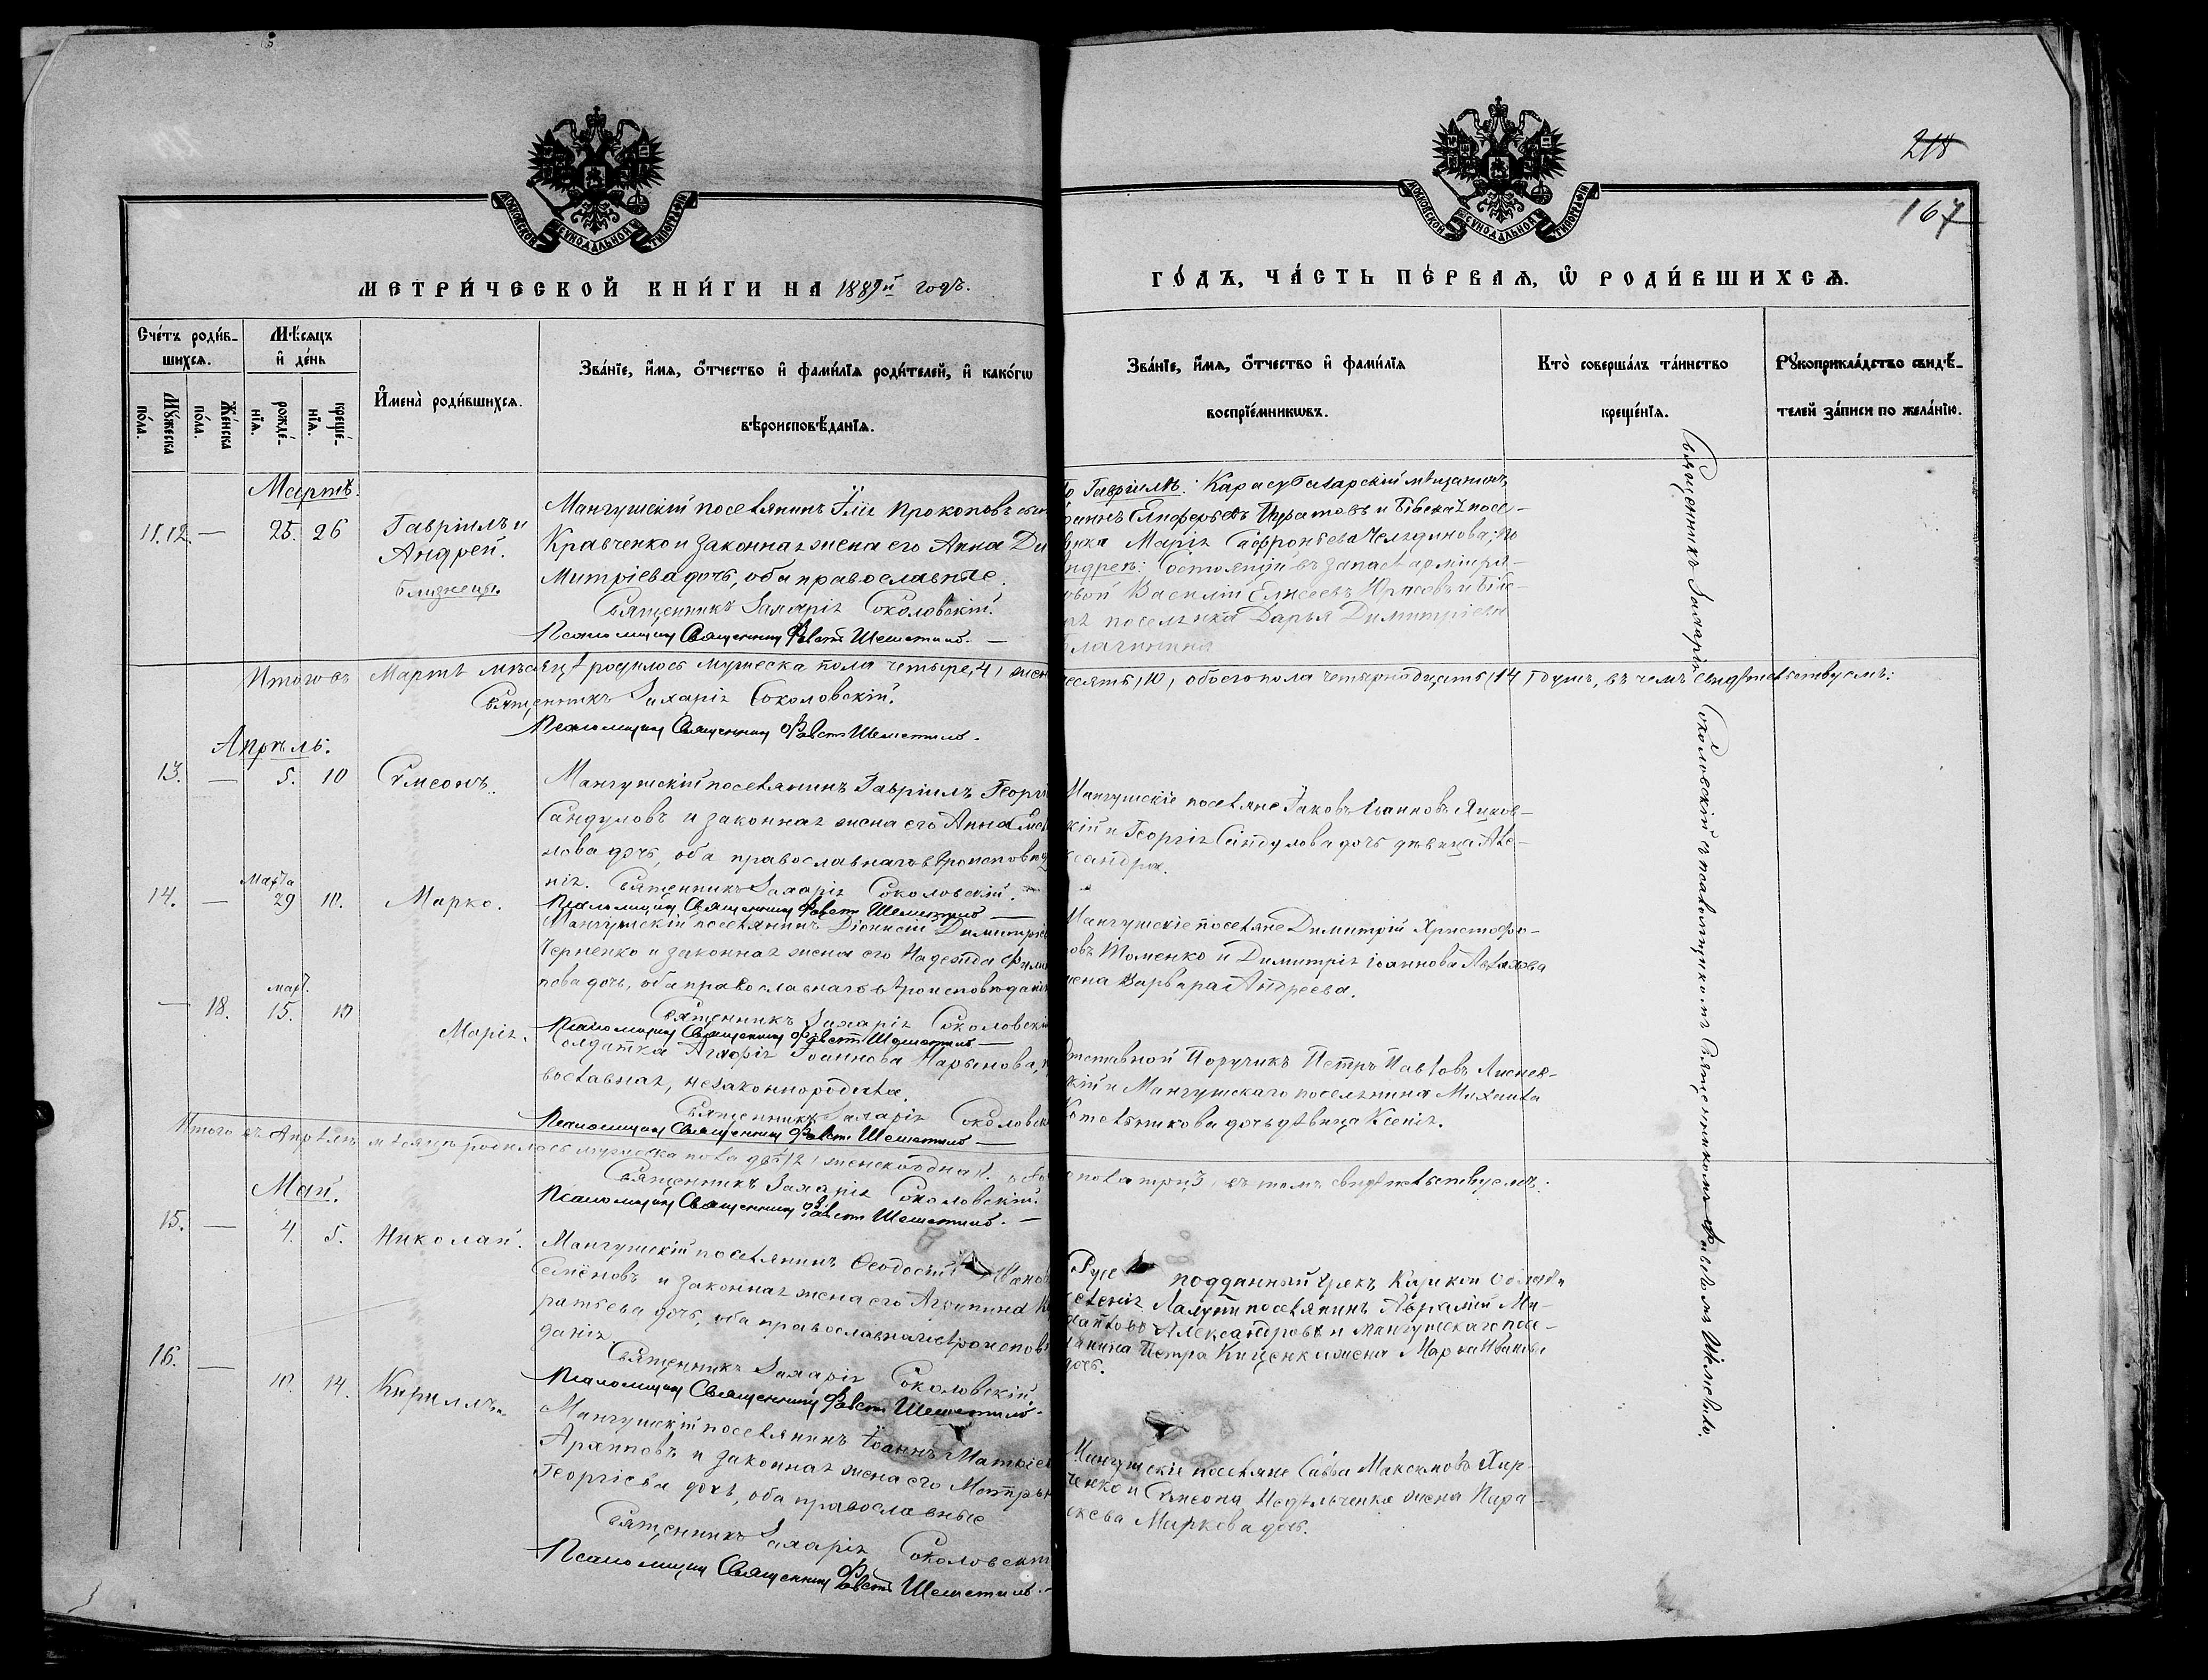 218
167
МОСКОВСКОЙ СѴНОДАЛЬНОЙ ТИПОГРАФІИ
МОСКОВСКОЙ СѴНОДАЛЬНОЙ ТИПОГРАФІИ
МЕТРИ́ЧЕСКОЙ КНИ́ГИ НА 1889й годъ.
ГО́ДЪ, ЧА́СТЬ ПЕ́РВАѦ, Ѡ҆ РОДИ́ВШИХСѦ.
Сче́тъ роди́в-
шихсѧ.
Мꙋ́жеска
по́ла.
Же́нска
по́ла.
Мѣ́сѧцъ
и҆ де́нь
рожде́-
нїѧ.
креще́-
нїѧ.
И҆мена̀ роди́вшихсѧ.
Зва́нїе, и҆́мѧ, ѻ҆́тчество и҆ фами́лїѧ роди́телей, и҆ како́гѡ
вѣроисповѣ́данїѧ.
Зва́нїе, и҆́мѧ, ѻ҆́тчество и҆ фами́лїѧ
воспрїе́мникѡвъ.
Кто̀ соверша́лъ та́инство
креще́нїѧ.
Рꙋкоприкла́дство свидѣ́-
телей за́писи по жела́нїю.
Мартъ.
11.12. — 25. 26 Гавріилъ и
Андрей.
Близнецы.
Мангушскій поселянинъ Илія Прокоповъ сын
Кравченко и законная жена его Анна Ди
митріева дочь, оба православные.
Священникъ Захарія Соколовскій.
Псаломщик Священник Фавст Шеметилло. —
о Гавріилѣ: Карасубазарскій мѣщанинъ
оаннъ Елиферьевъ Муратовъ и Біевская посе-
Марія Сафронѣева Челядинова; по
ндреѣ: состоящій въ запасѣ арміи ря-
овой Василій Елисеевъ Юрьевъ и Біе-
ая поселянка Дарья Димитріева
Итого въ Мартѣ мѣсяцѣ родилось мужеска пола четыре, 4, жен
есять, 10, обоего пола четырнадцать (14) душъ, въ чемъ свидѣтельствуемъ:
Священникъ Захарія Соколовскій.
Псаломщик Священник Фавст Шеметилло.
Апрѣль.
13. — 5. 10 Сѵмеонъ.
Мангушскій поселянинъ Гавріилъ Георгі
Сандуловъ и законная жена его Анна Сам
лова дочь, оба православнаго вѣроисповѣд
нія. Священникъ Захарія Соколовскій.
Псаломщик Священник Фавст Шеметилло —
Мангушскіе поселяне Іаковъ Іоанновъ Яцков-
кій и Георгія Сандулова дочь дѣвица Але-
сандра.
Марта
14. — 29 10. Марко.
Мангушскій поселянинъ Діонисій Димитріев
Черненко и законная жена его Надежда Фили
пова дочь, оба православнаго вѣроисповѣданія
Священникъ Захарія Соколовскій
Псаломщик Священник Фавст Шеметилло —
Мангушскіе поселяне Димитрій Христофо-
овъ Томенко и Димитрія Іоаннова
ена Варвара Андреева.
март.
— 18. 15. 10 Марія.
Солдатка Агафія Іоаннова Марынова, п
вославная, незаконнорождена.
Священникъ Захарія Соколовск
Псаломщик Священник Фавст Шеметилло —
Отставной Поручикъ Петръ Павловъ Лиснев-
кій и Мангушскаго поселянина Михаила
Котельникова дочь дѣвица Ксенія.
Итого въ Апрѣлѣ мѣсяцѣ родилось мужеска пола два 2, женска одна 1. обое
пола три, 3, въ томъ свидѣтельствуемъ:
Священникъ Захарія Соколовскій.
Псаломщик Священник Фавст Шеметилло. —
Май.
15. — 4. 5. Николай.
Мангушскій поселянинъ Ѳеодосій Ивано
Семёновъ и законная жена его Агрипина К
ратьева дочь, оба православнаго вѣроисповѣ
данія.
Священникъ Захарія Соколовскій
Псаломщик Священник Фавст Шеметилло.
подданный грекъ
поселянинъ Авраамій Ми-
Александровъ и Мангушскаго посе-
янина Петра Киценка жена Марѳа Иванова
дочь.
16. — 10. 14. Кириллъ.
Мангушскій поселянинъ Іоаннъ Матвѣев
Архиповъ и законная жена его Матрон
Георгіева дочь, оба православные
Священникъ Захарія Соколовскі
Псаломщик Священник Фавст Шеметилло. —
Мангушскіе поселяне Савва Максимовъ Хар-
ченко и Сѵмеона Недѣльченка жена Пара-
скева Маркова дочь.
Священникъ Захарія Соколовскій съ псаломщикомъ Священникомъ Фавстомъ Шеметилло.